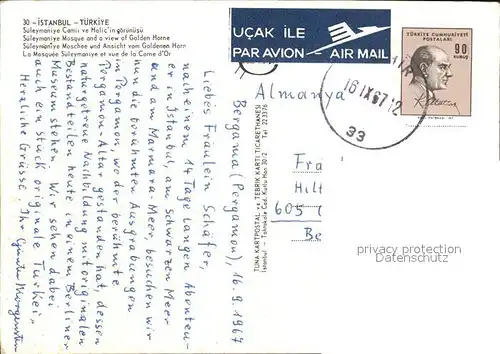 30 - İSTANBUL - TÜRKİYE
Süleymaniye Camii ve Haliç'in görünüşü
Süleymaniye Mosque and a view of Golden Horne
Süleymaniye Moschee und Ansicht vom Goldenen Horn
La Mosquée Süleymaniye et vue de la Corne d'Or
Bergama (Pergamon), 16.9.1967
Liebes Fräulein Schäfer,
nach einem 14 Tage langen Abenteu-
er in Istanbul, am Schwarzen Meer
und am Marmara-Meer, besuchen wir
nun die berühmten Ausgrabungen
in Pergamon, wo der berühmte
Pergamon-Altar gestanden hat, dessen
naturgetreue Nachbildung mit originalen
Bestandteilen heute in einem Berliner
Museum stehen. Wir sehen dabei
auch ein Stück originale Türkei.
Herzliche Grüsse, Ihr Günter Morgenstern
TUNA KARTPOSTAL ve TEBRİK KARTI TİCARETHANESİ
UÇAK İLE
PAR AVION
AIR MAIL
TÜRKİYE CUMHURİYETİ
POSTALARI
90
KURUŞ
16 IX 67 12
33
Almanya
Fra
Hilt
605
Be
privacy protection
Datenschutz